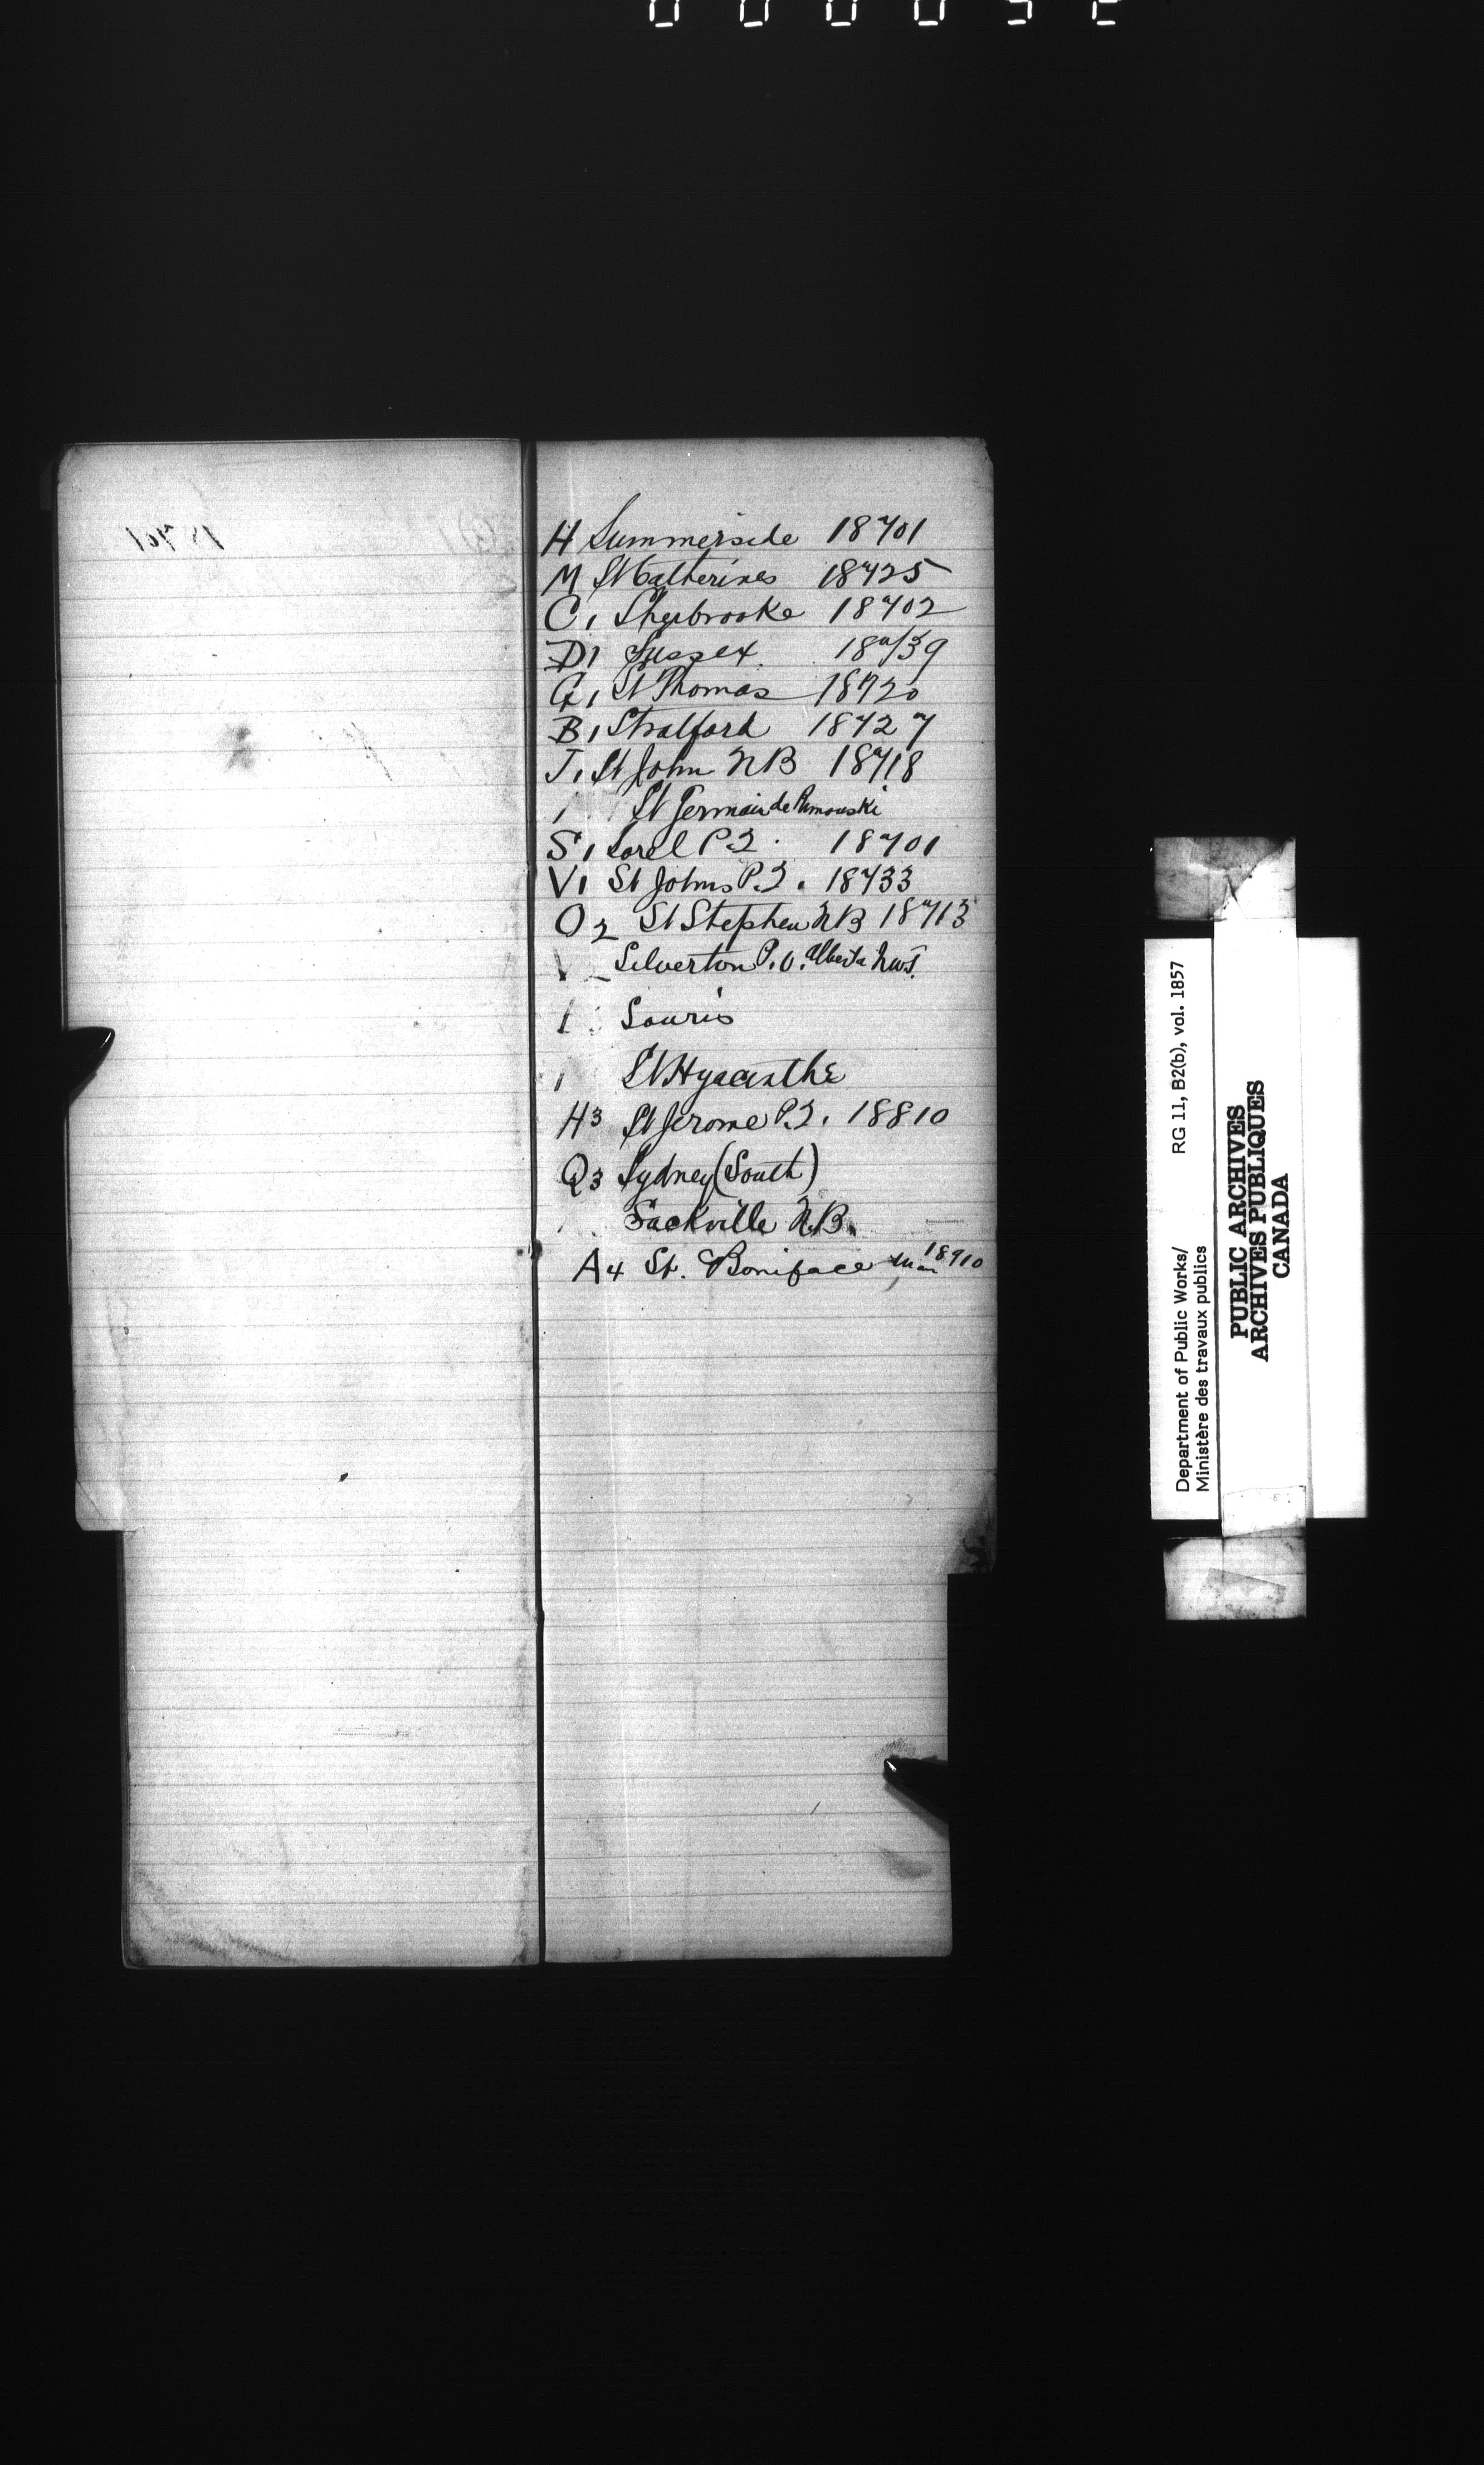 H Summerside 18701
M St Catherines 18725
C1 Sherbrooke 18702
D1 Sussex 18739
G1 St Thomas 18720
B1 Stratford 18727
J1 St John NB 18718
1 St Germain de Rimouski
S1 Sorel P.Q. 18701
V1 St Johns P.Q. 18733
O2 St Stephen NB 18713
Silverton P.O. Alberta N.W.T.
1 Souris
1 St Hyacinthe
H3 St Jerome P.Q. 18810
Q3 Sydney (South)
Sackville N.B.
A4 St. Boniface Man 18910
Department of Public Works/ RG 11, B2(b), vol. 1857
Ministère des travaux publics
PUBLIC ARCHIVES
ARCHIVES PUBLIQUES
CANADA